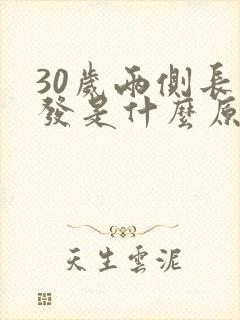 30歲兩側長
發是什麼原
天生雲泥